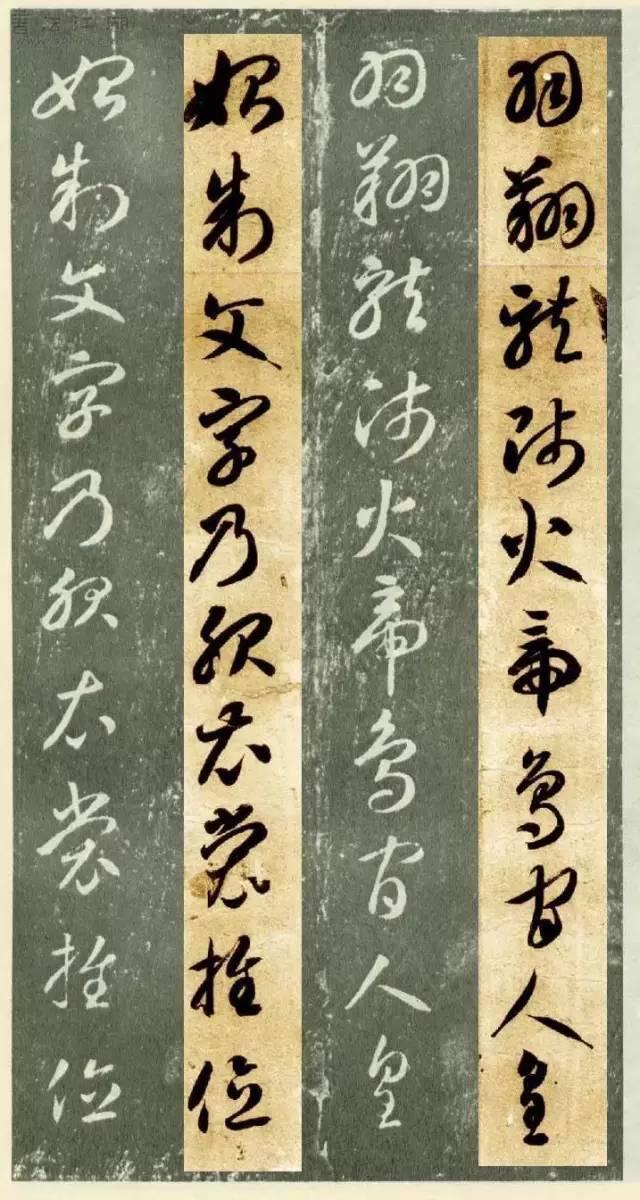 羽翔龍師火帝鳥官人皇
羽翔龍師火帝鳥官人皇
始制文字乃服衣裳推位
始制文字乃服衣裳推位
書法江湖